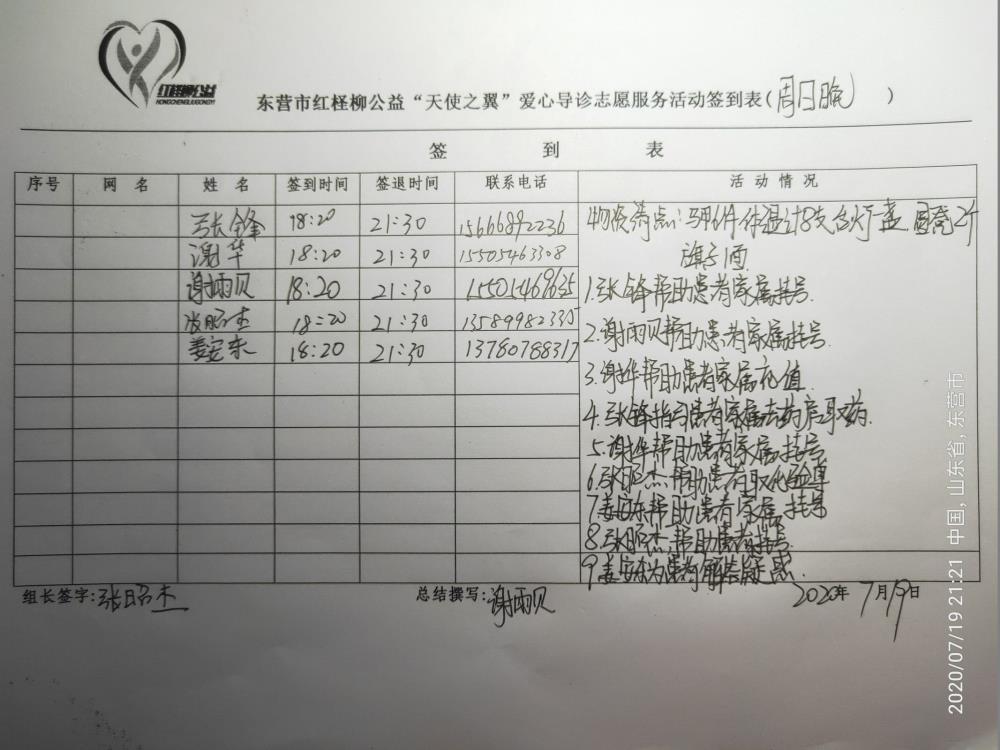 红柽柳公益
HONGCHENGLIUGONGYI
东营市红柽柳公益“天使之翼”爱心导诊志愿服务活动签到表(周日晚)
签到表
序号 网名 姓名 签到时间 签退时间 联系电话 活动情况
张锋 18:20 21:30 15666892236 物资清点:马甲6件 体温计8支 台灯一盏 2个
谢华 18:20 21:30 15505463308 旗子1面
谢雨贝 18:20 21:30 15505469635 1.张锋帮助患者家属挂号.
张昭杰 18:20 21:30 13589982335 2.谢雨贝帮助患者家属挂号.
姜安东 18:20 21:30 13780788317
3.谢华帮助患者家属充值.
4.张锋指引患者家属去药房取药.
5.谢华帮助患者家属挂号
6.张昭杰帮助患者取化验单
7.姜安东帮助患者家属挂号
8.张昭杰帮助患者挂号.
9.姜安东为患者解答疑惑.
组长签字:张昭杰 总结撰写:谢雨贝 2020年7月19日
2020/07/19 21:21 中国,山东省,东营市